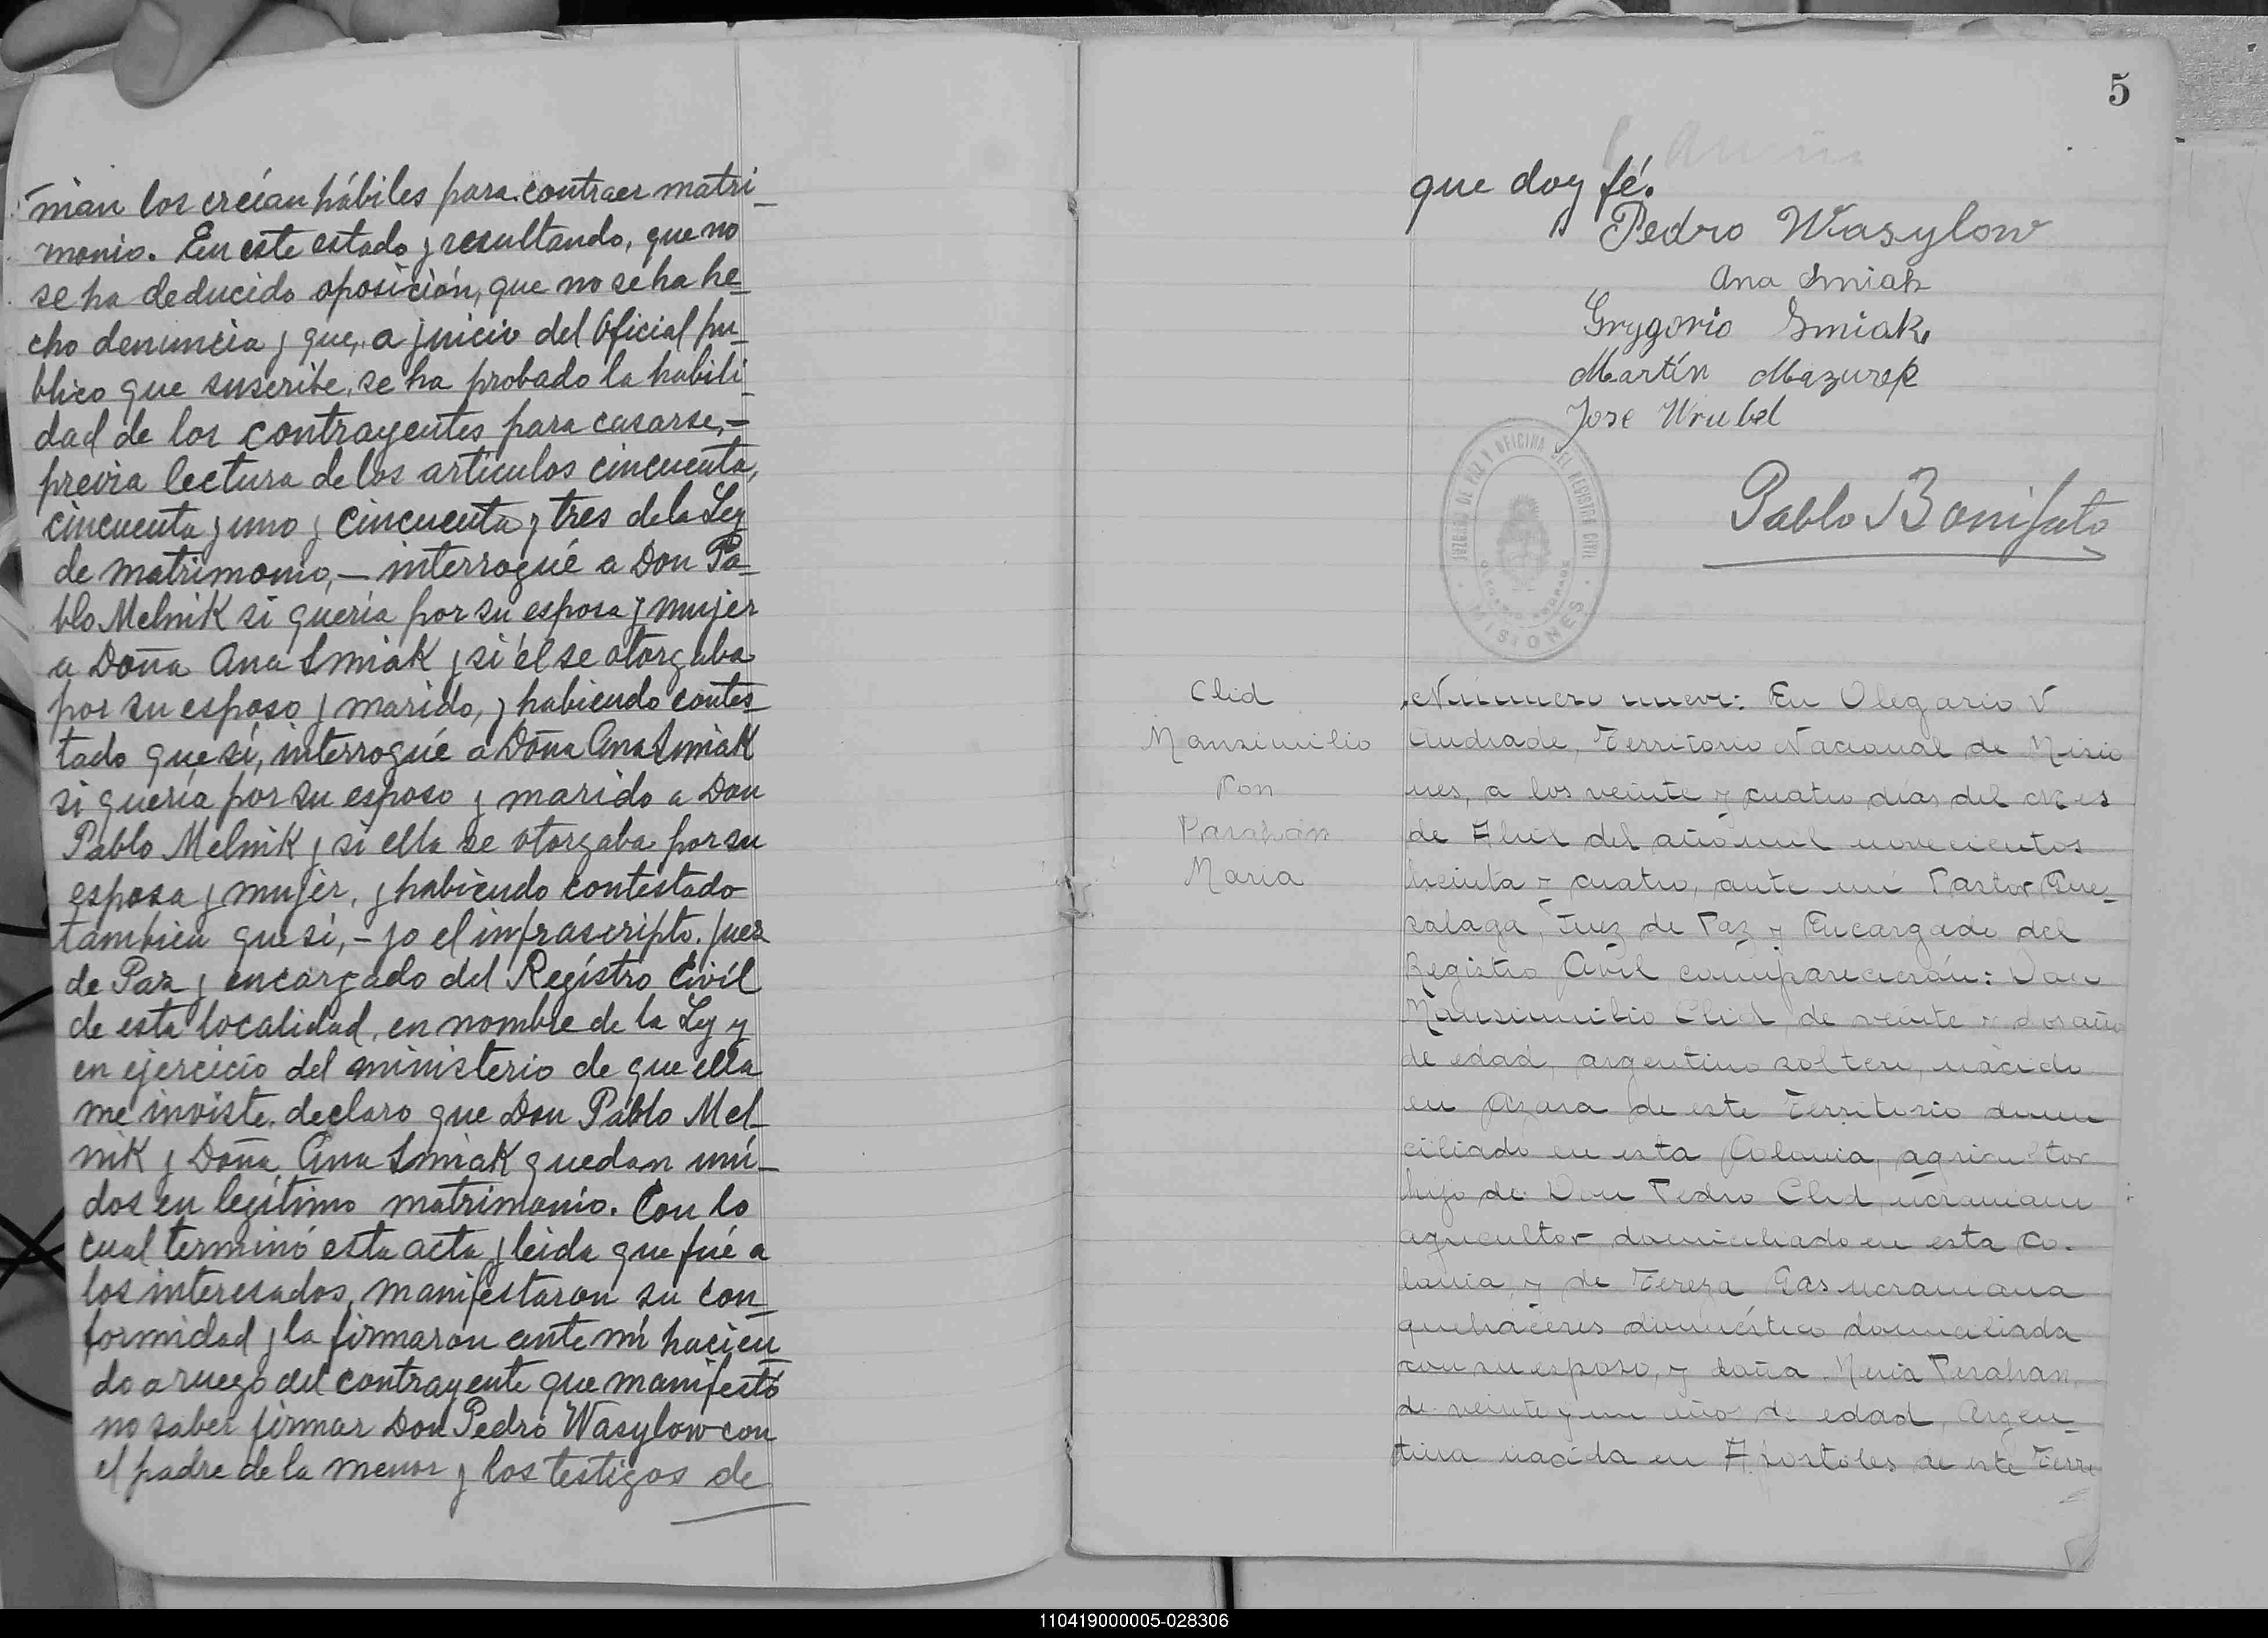 man los creían hábiles para contraer matri-
monio. En este estado y resultando, que no
se ha deducido oposición, que no se ha he-
cho denuncia y que, a juicio del Oficial pu-
blico que suscribe, se ha probado la habili-
dad de los contrayentes para casarse,-
previa lectura de los artículos cincuenta,
cincuenta y uno y cincuenta y tres de la Ley
de matrimonio,- interrogué a Don Pa-
blo Melnik si quería por su esposa y mujer
a Doña Ana Smiak y si él se otorgaba
por su esposo y marido, y habiendo contes-
tado que sí, interrogué a Doña Ana Smiak
si quería por su esposo y marido a Don
Pablo Melnik y si ella se otorgaba por su
esposa y mujer, y habiendo contestado
tambien que sí,- yo el infrascripto. Juez
de Paz y encargado del Regístro Civíl
de esta localidad, en nombre de la Ley y
en ejercicio del ministerio de que ella
me inviste, declaro que Don Pablo Mel-
nik y Doña Ana Smiak quedan uni-
dos en legítimo matrimonio. Con lo
cual terminó esta acta y leida que fué a
los interesados, manifestaron su con-
formidad y la firmaron ante mí hacien
do a ruego del contrayente que manifestó
no saber firmar Don Pedro Wasylow con
el padre de la menor y los testigos de
5
que doy fé.
Pedro Wasylow
Ana Smiak
Grygorio Smiak,
Martín Mazurek
Jose Wrubel
JUZGADO DE PAZ Y OFICINA DEL REGISTRO CIVIL
OLEGARIO ANDRADE
MISIONES
Pablo Bonifato
Clid
Mansimilio
Con
Parahan
Maria
Número nueve: En Olegario V
Andrade, Territorio Nacional de Misio
nes, a los veinte y cuatro días del mes
de Abril del año mil novecientos
treinta y cuatro, ante mí Pastor Que-
salaga, Juez de Paz y Encargado del
Registro Civil comparecierón: Don
Mansimilio Clid, de veinte y dos años
de edad, argentino soltero, nacido
en Azara de este Territorio domi
ciliado en esta Colonia, agricultor
hijo de Don Pedro Clid, ucraniano
agricultor domiciliado en esta Co-
lonia y de Tereza Gas ucraniana
quehaceres doméstico domiciliada
con su esposo, y doña Maria Parahan,
de veinte y un años de edad, Argen-
tina nacida en Apostoles de este Terri
110419000005-028306